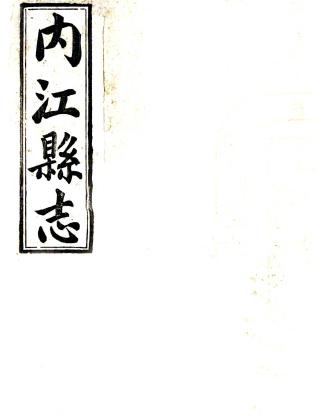 内江縣志